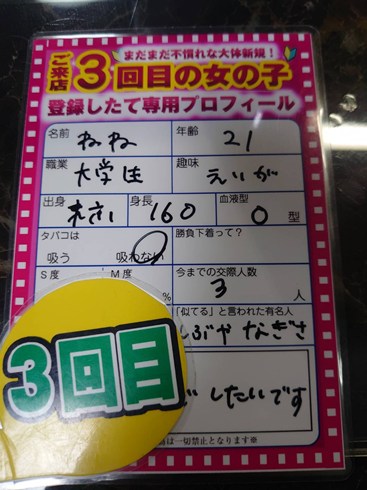 まだまだ不慣れな大体新規！
ご来店 3回目の女の子
登録したて専用プロフィール
名前 ねね 年齢 21
職業 大学生 趣味 えいが
出身 身長 160 血液型 O 型
タバコは 勝負下着って？
吸う 吸わない
S度 M度 今までの交際人数
% 3 人
「似てる」と言われた有名人
しぶや なぎさ
3回目
したいです
は一切禁止となります※